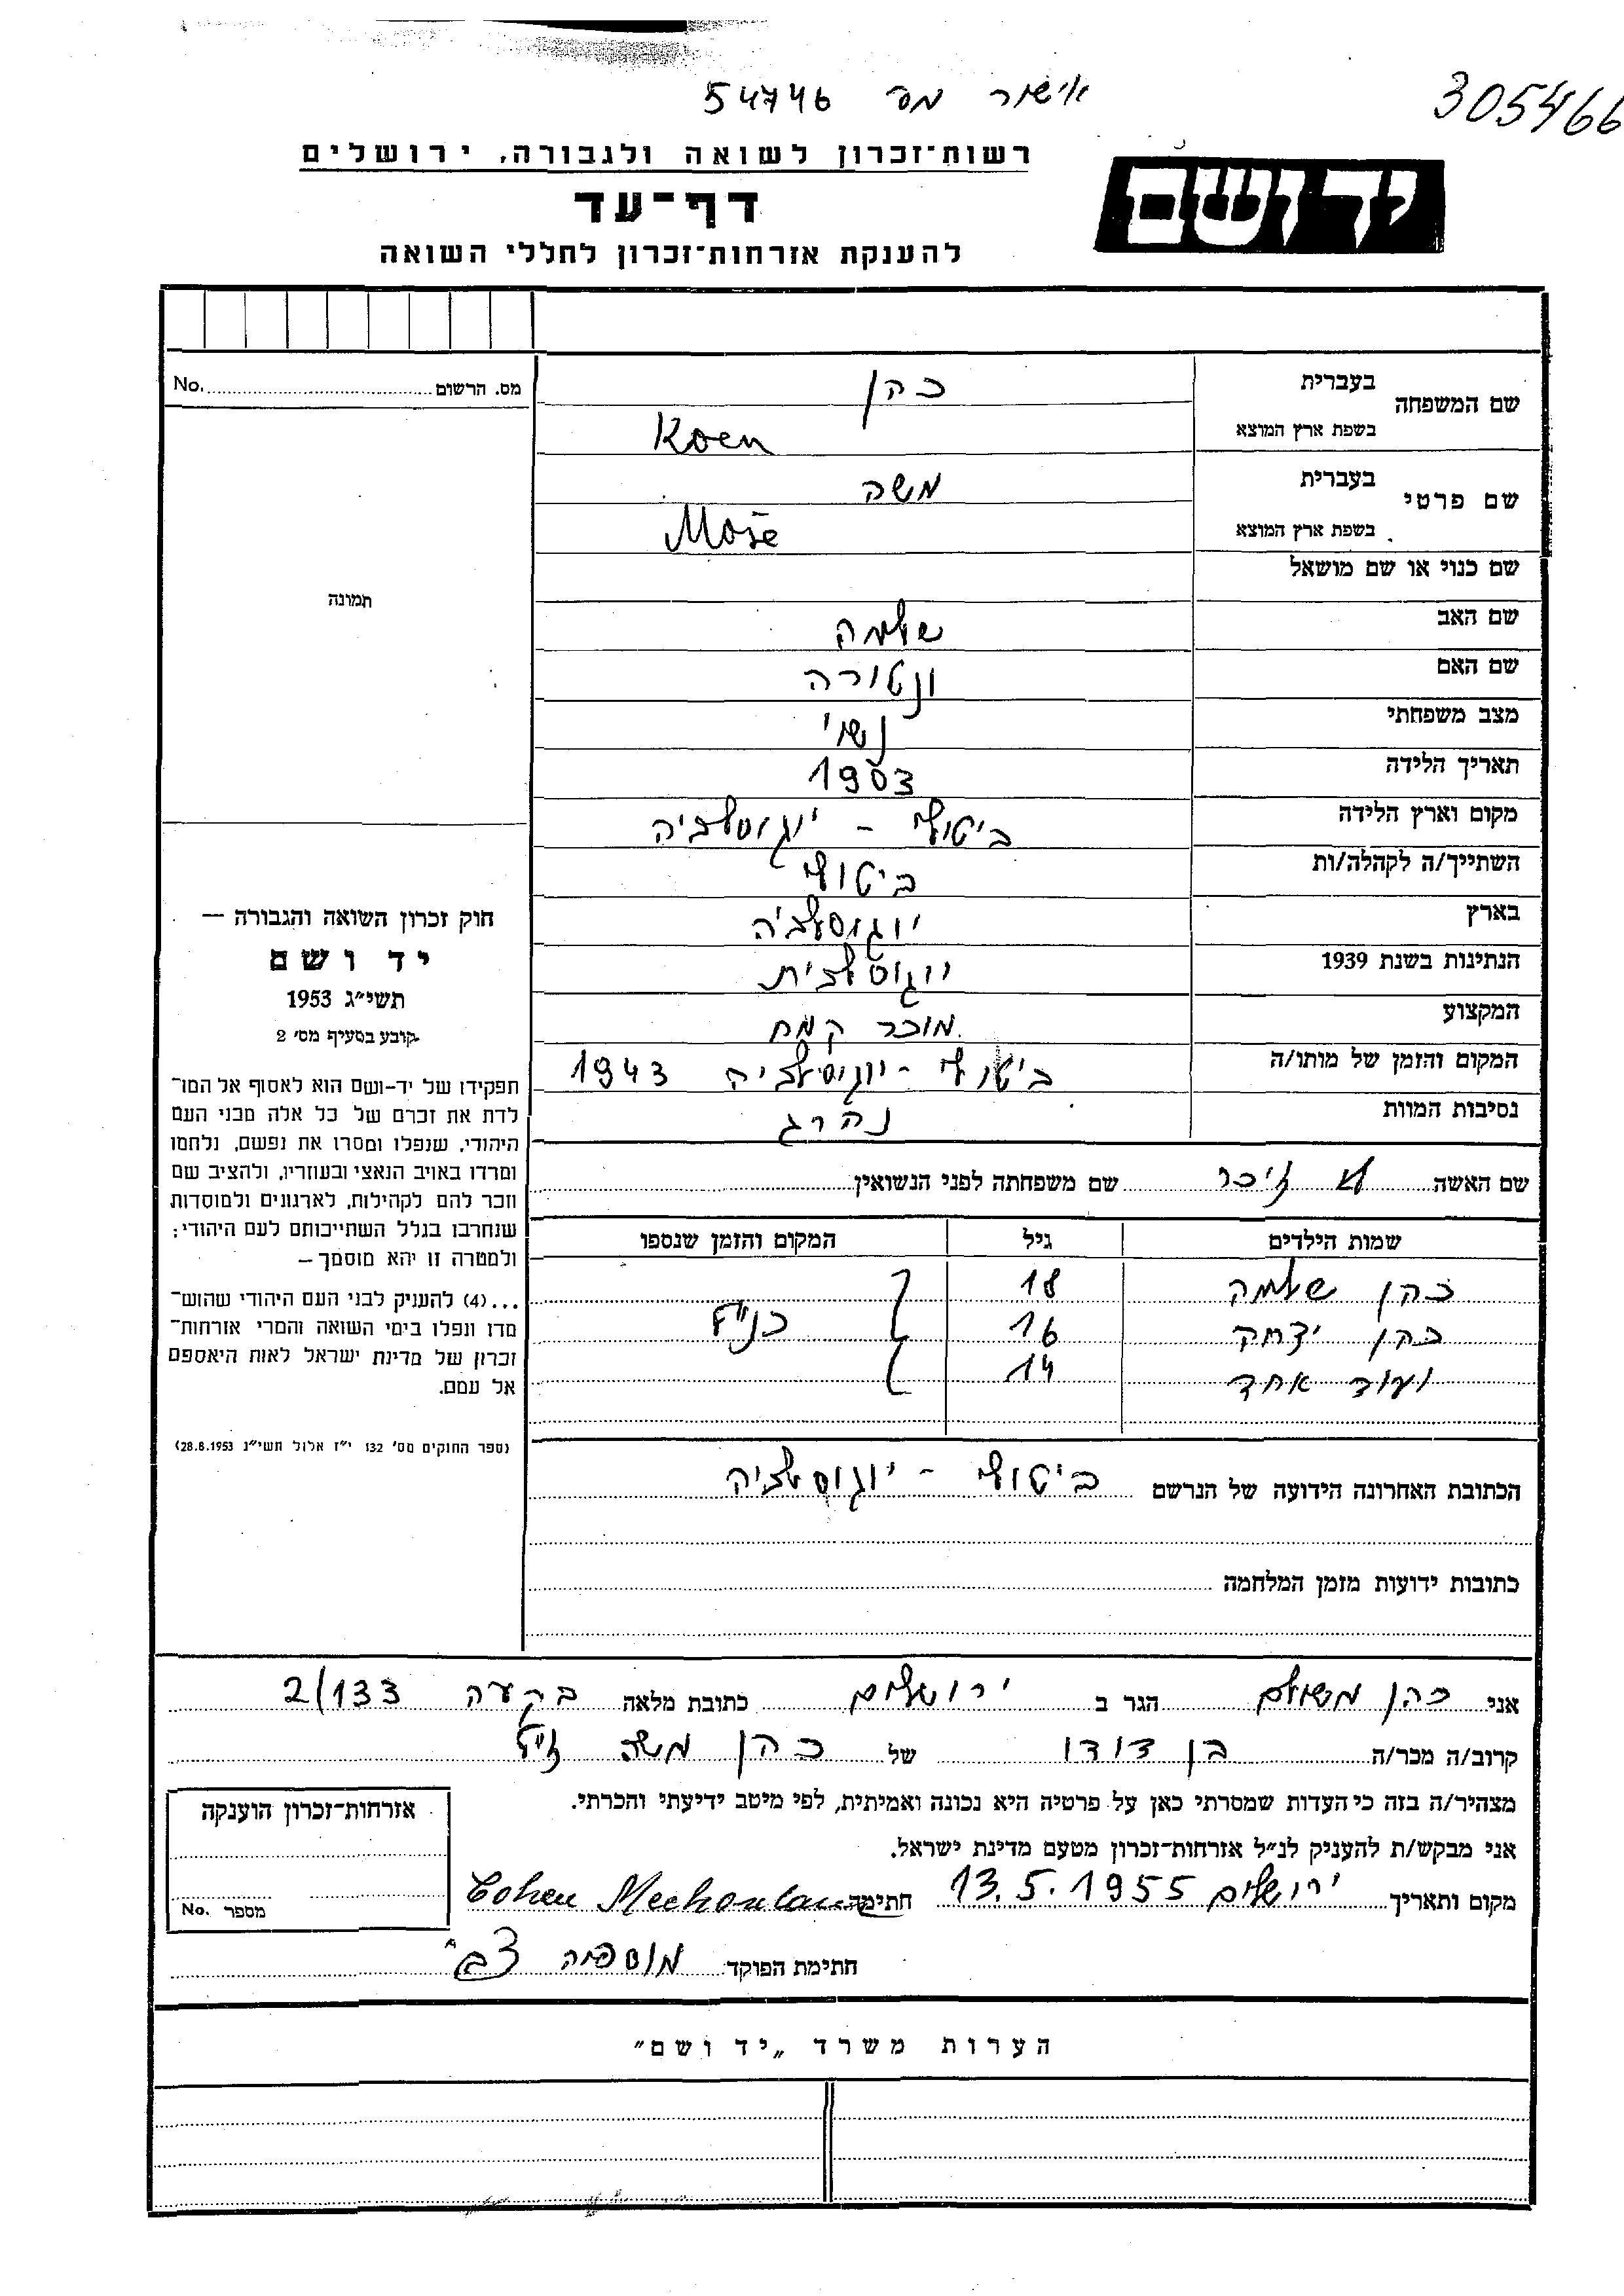 אישור מס 54746
305466
רשות־זכרון לשואה ולגבורה, ירושלים
יד ושם
דף־עד
להענקת אזרחות־זכרון לחללי השואה
שם המשפחה בעברית כהן
בשפת ארץ המוצא Koen
שם פרטי בעברית משה
בשפת ארץ המוצא Moše
שם כנוי או שם מושאל
שם האב שלמה
שם האם ונטורה
מצב משפחתי נשוי
תאריך הלידה 1903
מקום וארץ הלידה ביטולי - יוגוסלביה
השתייך/ה לקהלה/ות ביטולי
בארץ יוגוסלביה
הנתינות בשנת 1939 יוגוסלבית
המקצוע מוכר קמח
המקום והזמן של מותו/ה ביטולי - יוגוסלביה 1943
נסיבות המוות נהרג
מס. הרשום No.
תמונה
חוק זכרון השואה והגבורה —
יד ושם
תשי״ג 1953
קובע בסעיף מס׳ 2
תפקידו של יד-ושם הוא לאסוף אל המו־
לדת את זכרם של כל אלה מבני העם
היהודי, שנפלו ומסרו את נפשם, נלחמו
ומרדו באויב הנאצי ובעוזריו, ולהציב שם
וזכר להם לקהילות, לארגונים ולמוסדות
שנחרבו בגלל השתייכותם לעם היהודי;
ולמטרה זו יהא מוסמך —
...(4) להעניק לבני העם היהודי שהוש־
מדו ונפלו בימי השואה והמרי אזרחות־
זכרון של מדינת ישראל לאות היאספם
אל עמם.
(ספר החוקים מס׳ 132 י״ז אלול תשי״ג 28.8.1953)
שם האשה לא זיכר שם משפחתה לפני הנשואין
שמות הילדים גיל המקום והזמן שנספו
כהן שלמה 18
כהן יצחק 16 כנ״ל
ועוד אחד 14
הכתובת האחרונה הידועה של הנרשם ביטולי - יוגוסלביה
כתובות ידועות מזמן המלחמה
אני כהן משולם הגר ב ירושלים כתובת מלאה בקעה 2/133
קרוב/ה מכר/ה בן דודו של כהן משה ז״ל
מצהיר/ה בזה כי העדות שמסרתי כאן על פרטיה היא נכונה ואמיתית, לפי מיטב ידיעתי והכרתי.
אני מבקש/ת להעניק לנ״ל אזרחות־זכרון מטעם מדינת ישראל.
מקום ותאריך ירושלים 13.5.1955 חתימה Cohen Mechoulam
חתימת הפוקד
אזרחות־זכרון הוענקה
מספר No.
הערות משרד „יד ושם״